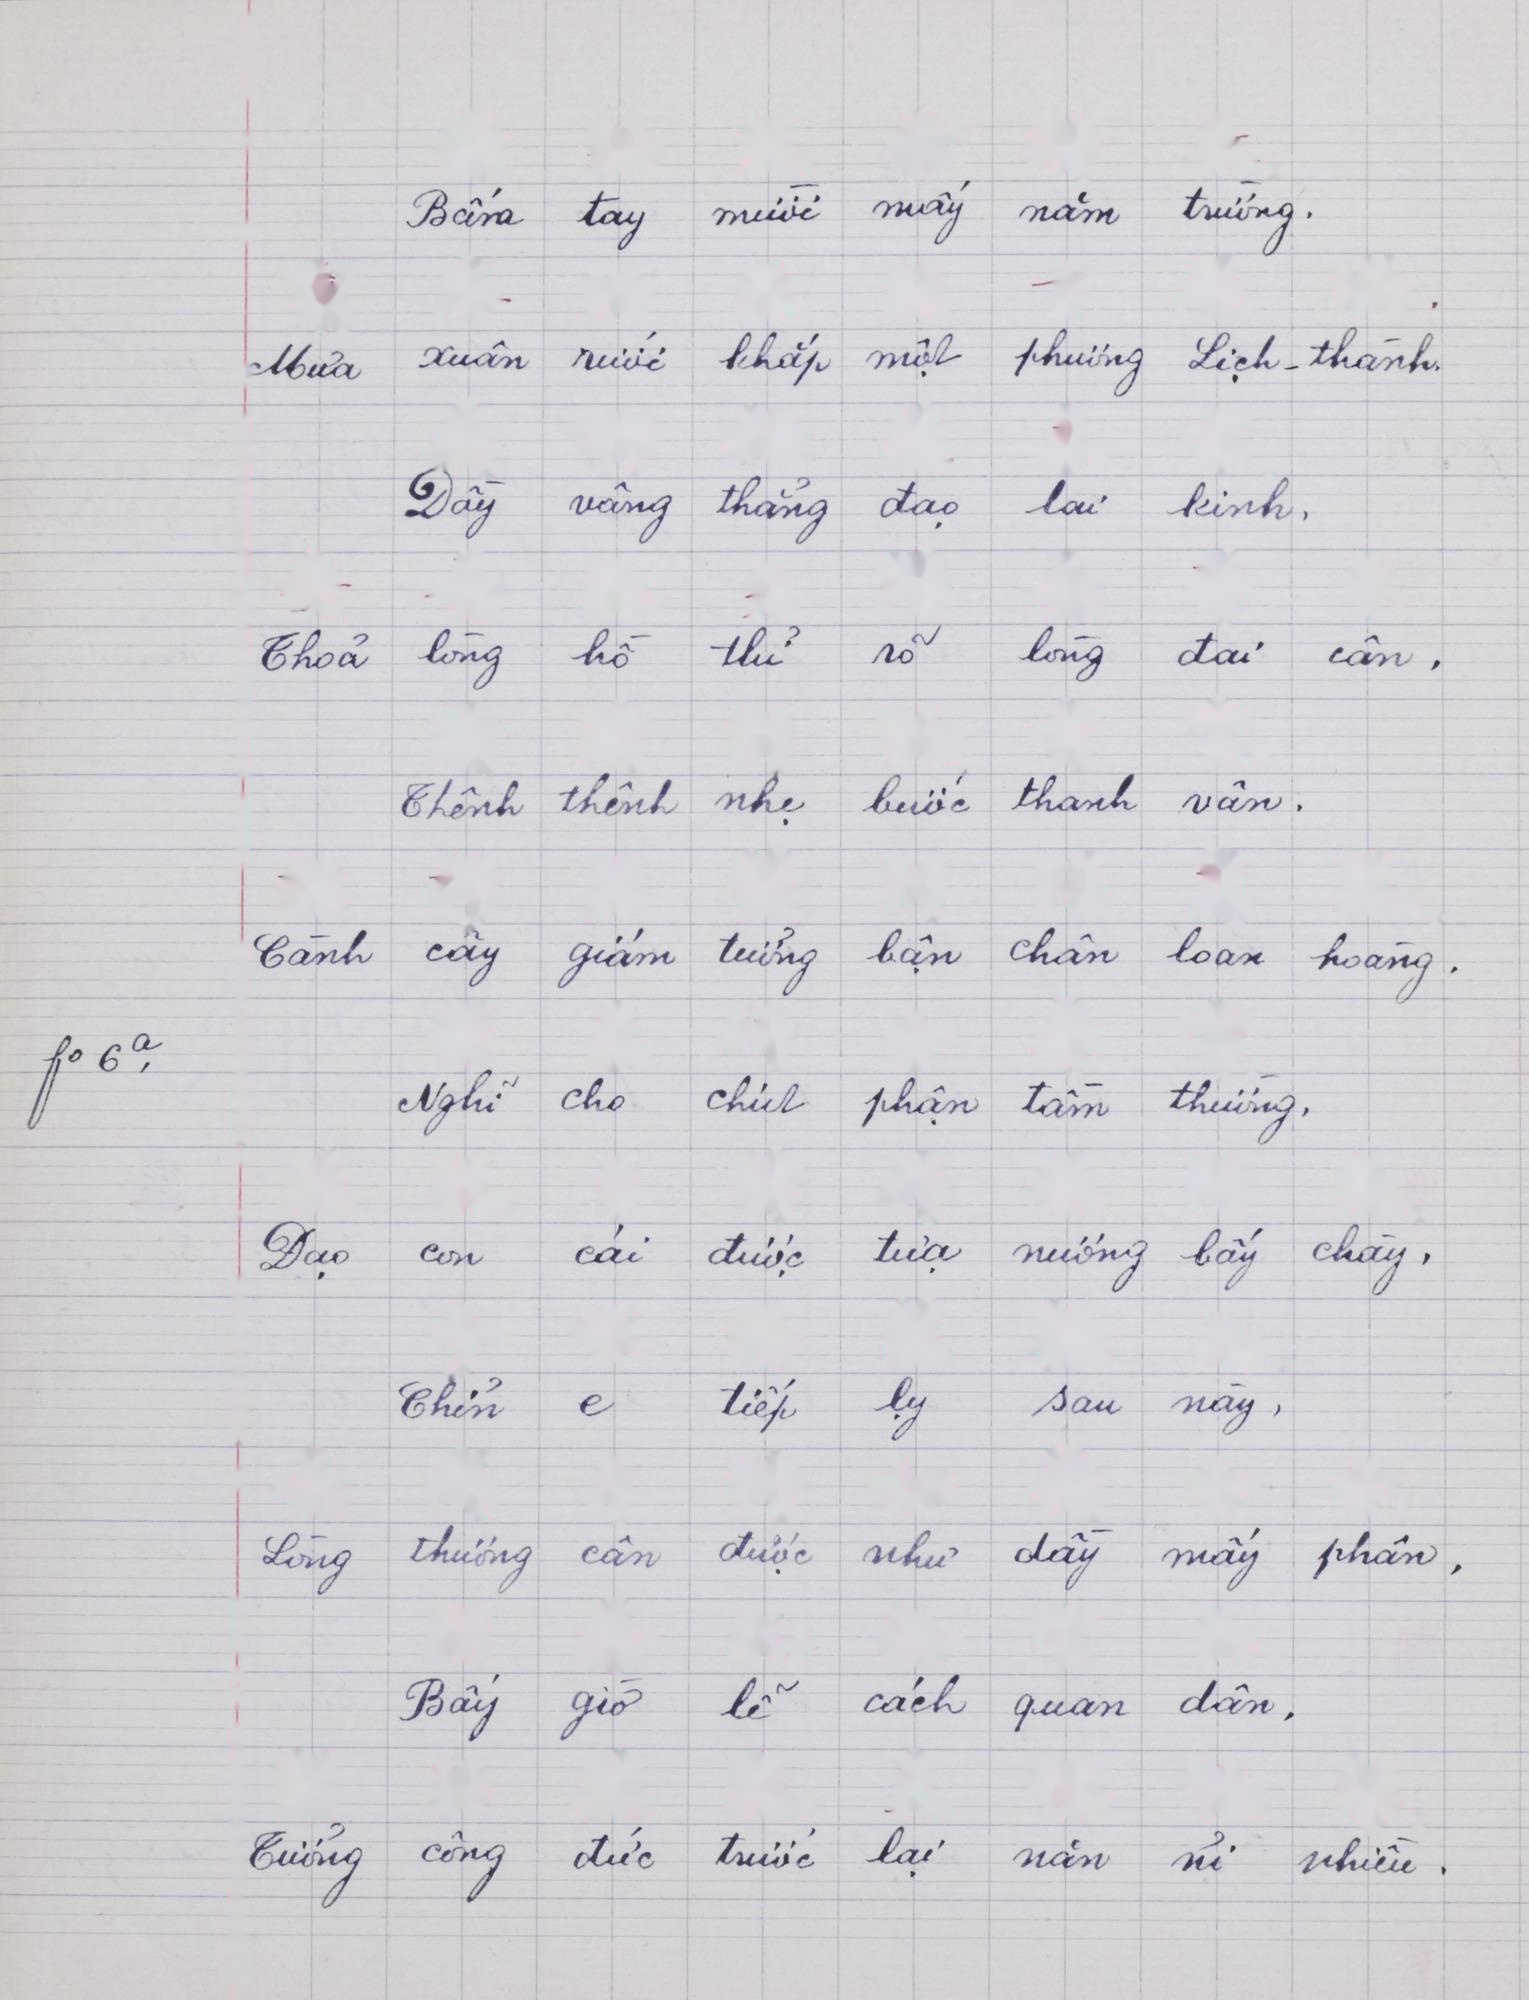 Bấm tay mười mấy năm trường.
Mưa xuân rưới khắp một phương Lịch-thành.
Dẫy vâng thẳng đạo lai kinh,
Thoả lòng hồ thỉ rõ lòng đai cân,
Thênh thênh nhẹ bước thanh vân.
Cành cây giám tưởng bận chân loan hoàng.
Nghĩ cho chút phận tầm thường,
Dạo con cái được tựa nương bấy chầy,
Chỉn e tiếp lỵ sau này,
Lòng thương cân được như dầy mấy phân,
Bấy giờ lẽ cách quan dân,
Tưởng công đức trước lại năn nỉ nhiều.
fº 6ª,